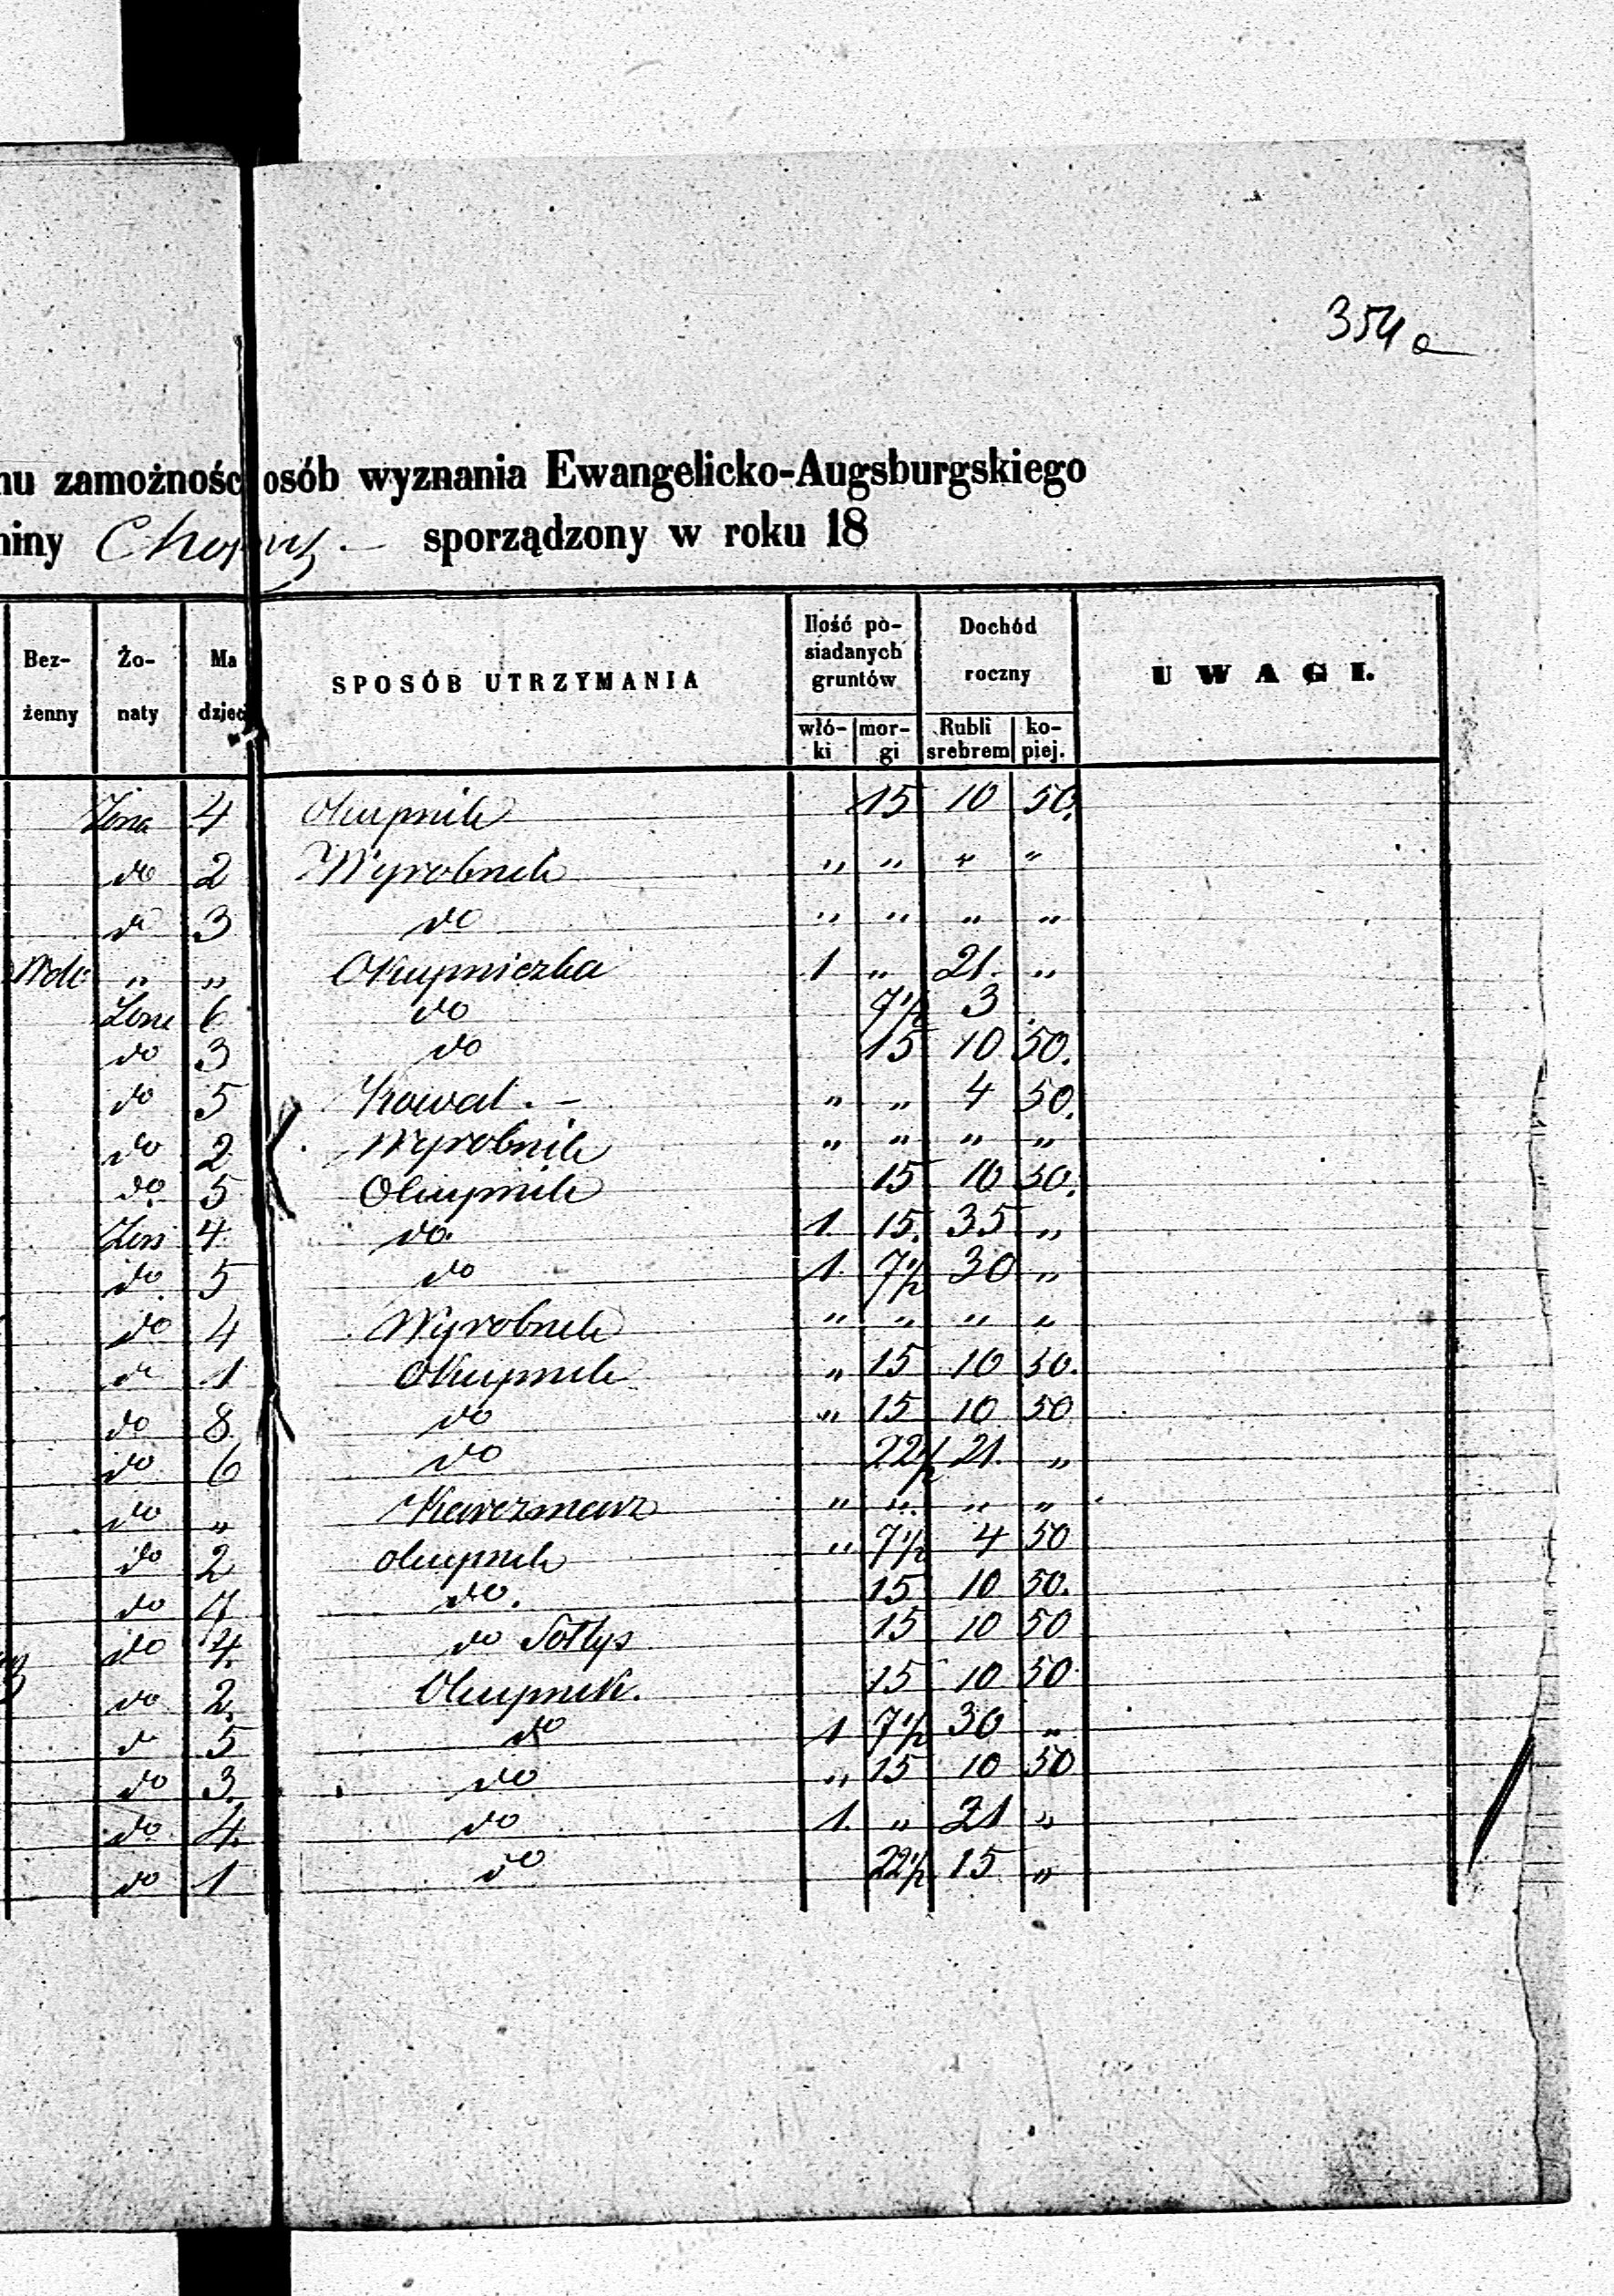 354a
nu zamożności osób wyznania Ewangelicko-Augsburgskiego
miny sporządzony w roku 18
Bez-żenny Żo-naty Ma dzieci SPOSÓB UTRZYMANIA Ilość po-siadanych gruntów włó-ki mor-gi Dochód roczny Rubli srebrem ko-piej. UWAGI.
Żona 4 Okupnik 15 10 50.
do 2 Wyrobnik " " " "
do 3 do " " " "
" " Okupniczka 1 " 21. "
Żona 6 do 7½ 3
do 3 do 15 10 50.
do 5 Kowal. — " " 4 50.
do 2 Wyrobnik " " " "
do 5 Okupnik 15 10 50.
Żona 4 do. 1. 15. 35 "
do 5 do 1. 7½ 30 "
do 4 Wyrobnik " " " "
do 1 Okupnik " 15 10 50.
do 8 do " 15 10 50
do 6 do 22½ 21. "
do " Karczmarz " " " "
do 2 okupnik " 7½ 4 50
do 4 do. 15 10 50.
do 4. do Sołtys 15 10 50
do 2. Okupnik. 15 10 50
do 5 do 1 7½ 30 "
do 3. do " 15 10 50
do 4. do 1. " 21 "
do 1 do 22½ 15 "